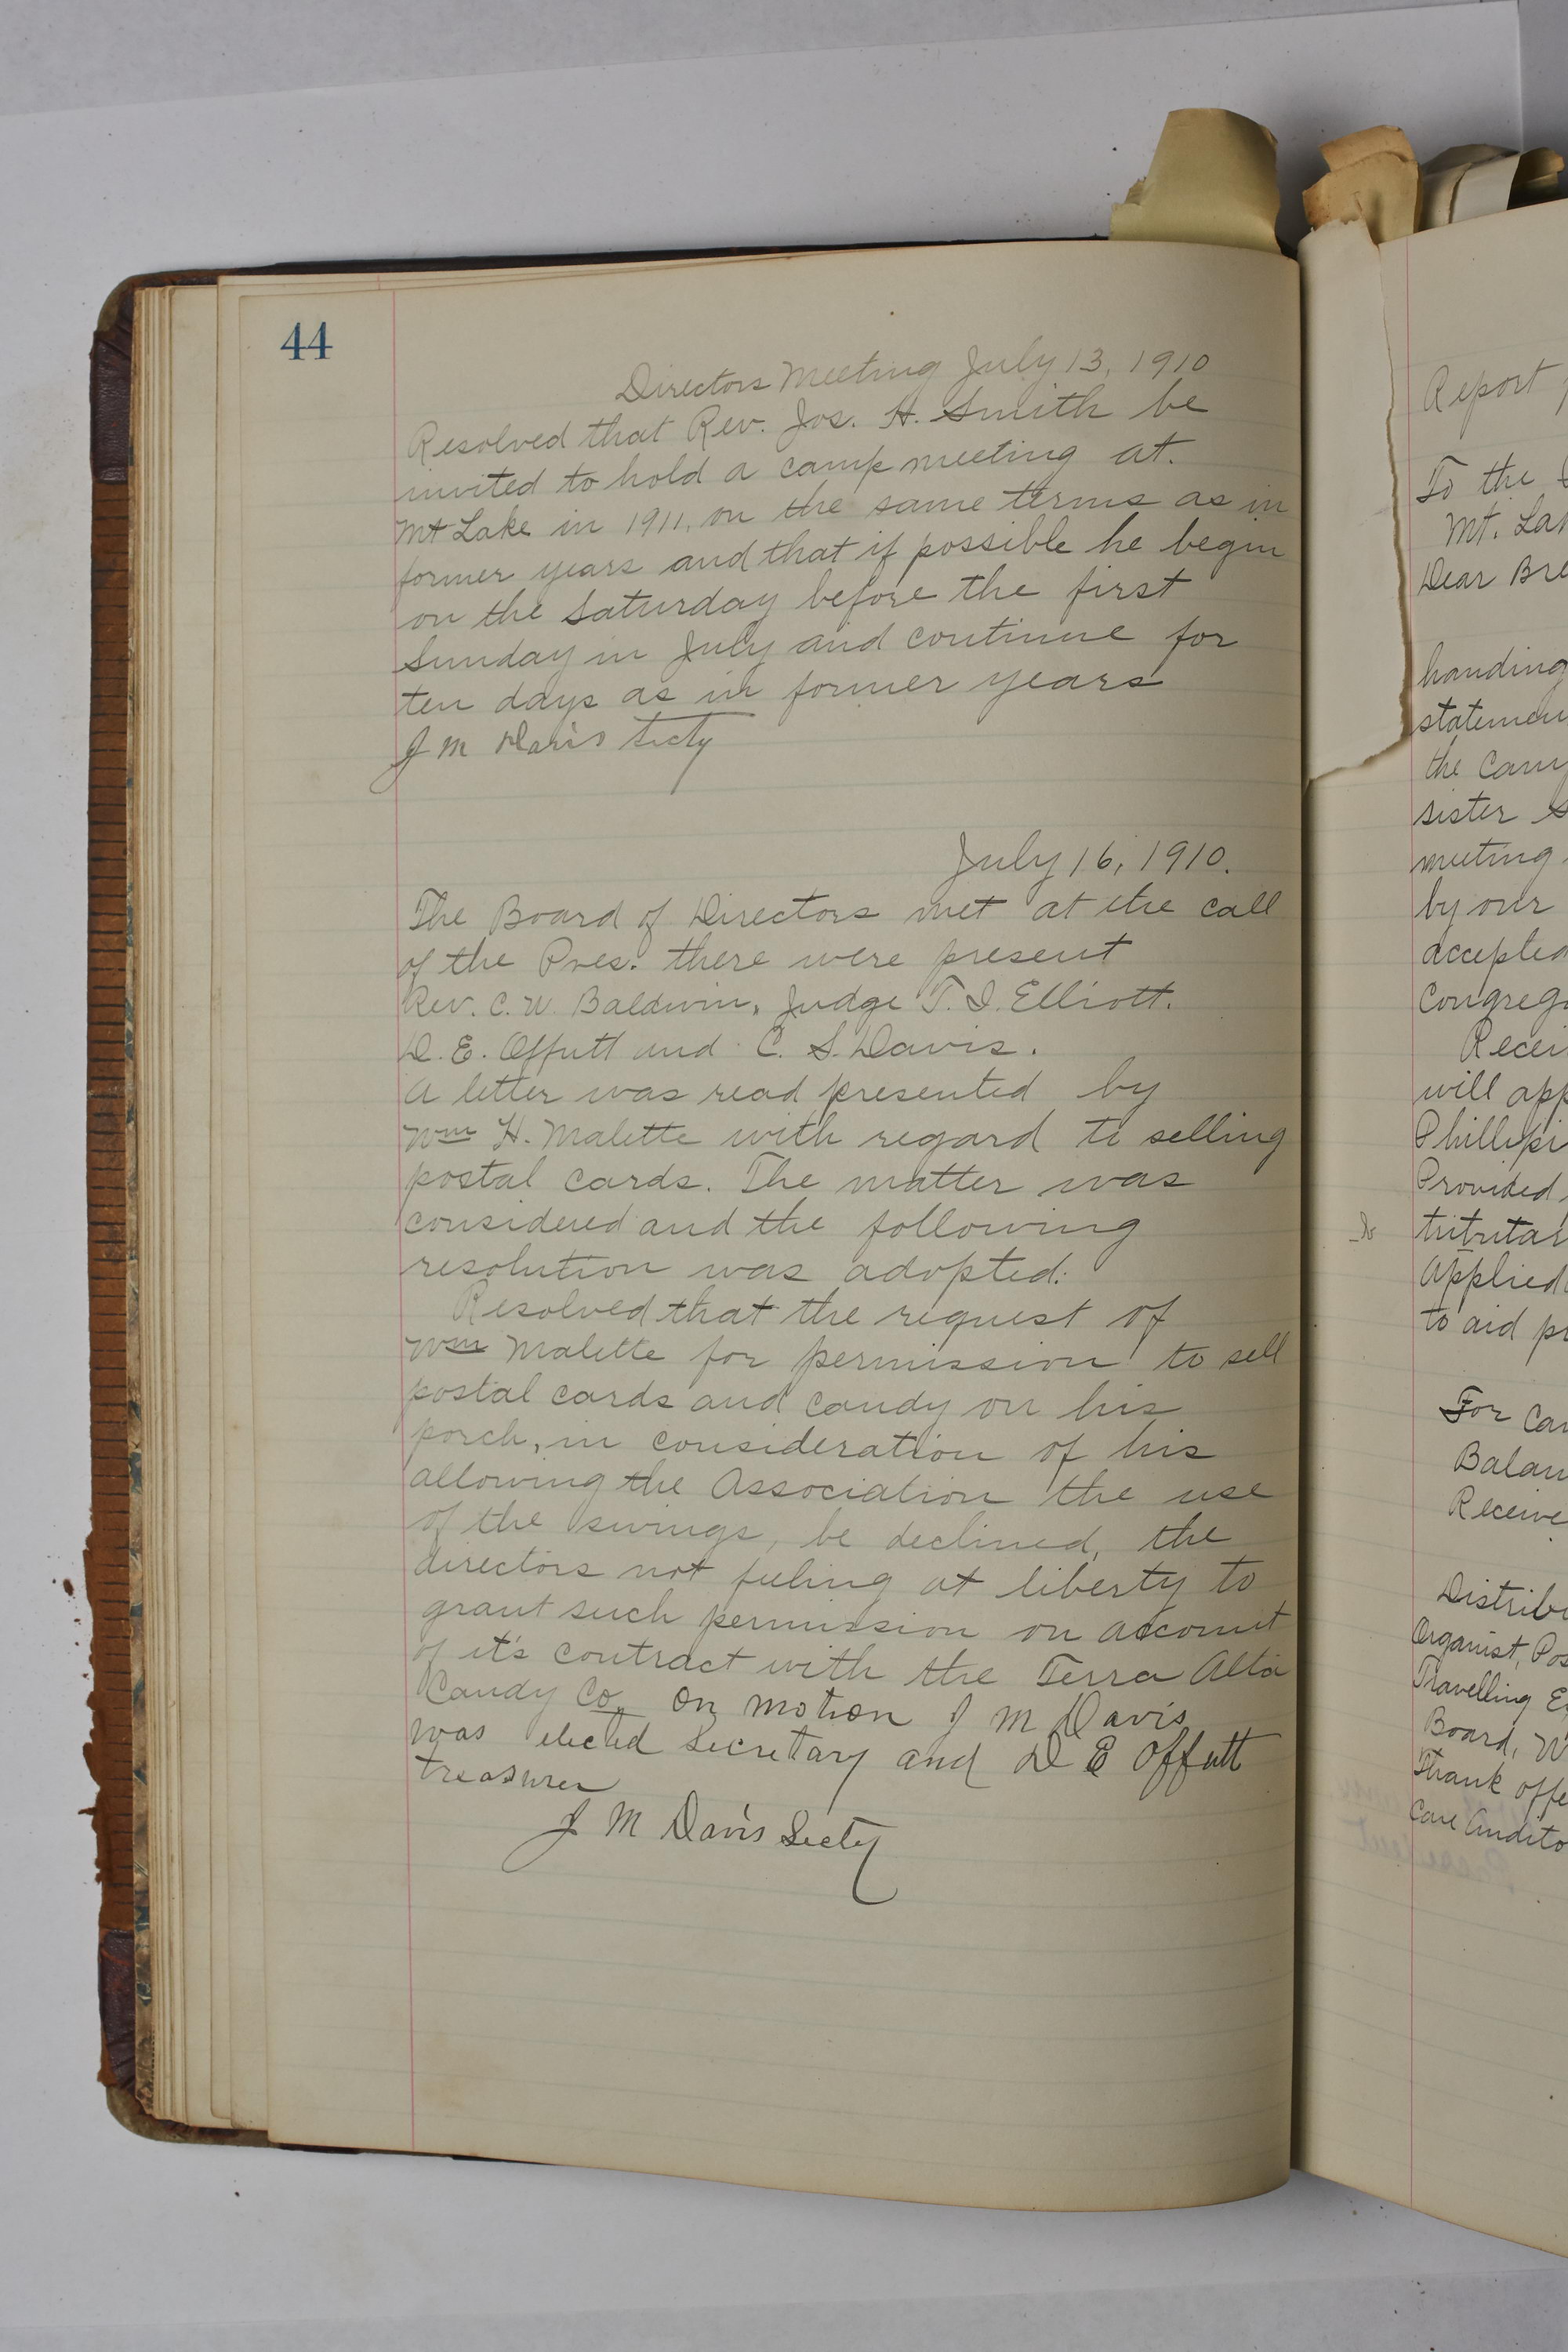 44
Directors Meeting July 13, 1910
Resolved that Rev. Jos. H. Smith be
invited to hold a camp meeting at.
Mt Lake in 1911, on the same terms as in
former years and that if possible he begin
on the Saturday before the first
Sunday in July and continue for
ten days as in former years
J M Davis Secty
July 16, 1910.
The Board of Directors met at the call
of the Pres. there were present
Rev. C. W. Baldwin, Judge T. I. Elliott.
D. E. Offutt and C. S. Davis.
A letter was read presented by
Wm H. Malette with regard to selling
postal cards. The matter was
considered and the following
resolution was adopted:
Resolved that the request of
Wm Malette for permission to sell
postal cards and candy on his
porch, in consideration of his
allowing the Association the use
of the swings, be declined, the
directors not feeling at liberty to
grant such permission on account
of it's contract with the Terra Alta
Candy Co. On motion J M Davis
was elected Secretary and D E Offutt
treasurer
J M Davis Secty
Report
To the
Mt. La
Dear Bre
handing
statemen
the Cam
sister
meeting
by our
accepted
Congreg
Recei
will app
Phillipi
Provided
tributa
Applied
to aid pr
For Ca
Balan
Receive
Distribu
Organist, Pos
Travelling E
Board, W
Thank offe
Care Audito